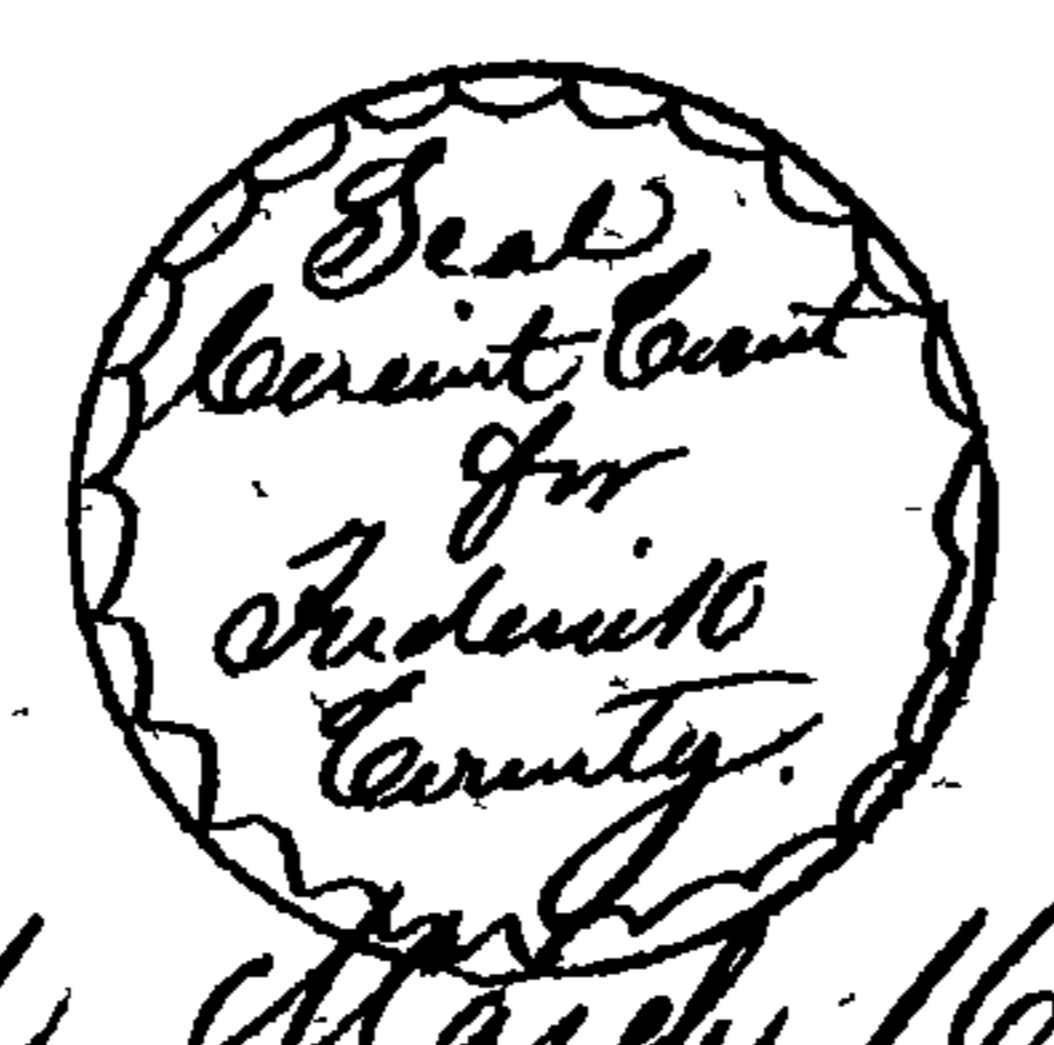 Seal
Circuit Court
for
Frederick
County.